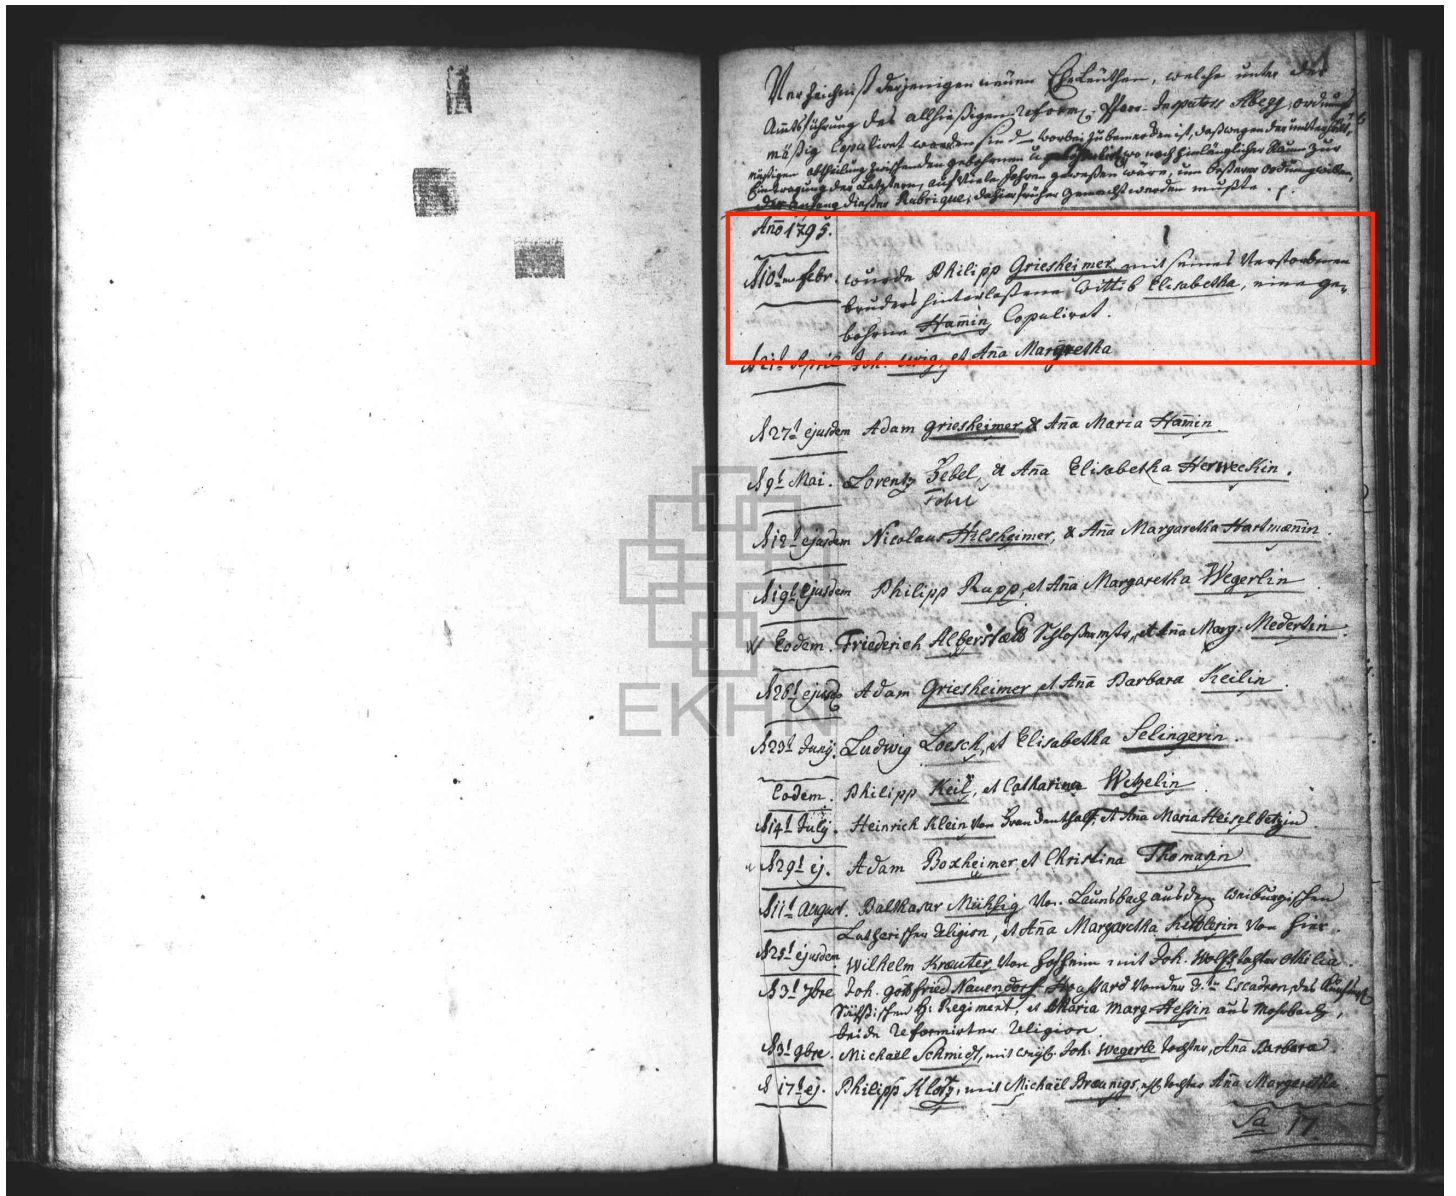 Verzeichniß derjenigen neüen Eheleüthen, welche unter der
Amtsführung des allhießigen reform. Pfarr-Inspectors Abegg, ordnungs
mäßig Copulirt worden sind – worbei zu bemercken ist, daß wegen der
abtheilung zwischen den gebohrnen u. noch hinlänglicher Raum zur
Eintragung der Letztern, auf viele Jahren geweßen wäre, um beßerer Ordnung willen,
der anfang dießer Rubrique, dahier früher gemacht werden mußte.
Año 1795.
d 10t febr. wurde Philipp Griesheimer mit seines Verstorbenen
bruders hinterlaßene Wittib Elisabetha, eine ge-
bohrne Ham̄in, Copulirt.
d 21t April Joh. et Aña Margretha
d 27t ejusdem Adam griesheimer & Aña Maria Ham̄in
d 9t Mai. Lorentz Zebel, & Aña Elisabetha Herweckin.
Fobel
d 12t ejusdem Nicolaus Hilsheimer, & Aña Margaretha Hartmæñin.
d 19t Ejusdem Philipp Rupp, et Aña Margaretha Wegerlin
Eodem. Friederich Schloßermstr, et Aña Marg: Medertin.
d 26t ejusd Adam Griesheimer et Aña Barbara Keilin.
d 23t Junÿ. Ludwig Loesch, et Elisabetha Selingerin.
Eodem. Philipp Keil, et Catharina Wetzelin.
d 14t Julÿ. Heinrich Klein von et Aña Maria Heiselbetzin
d 29t ej. Adam Boxheimer et Christina Thomasin
d 11t August. Balthasar Mühlig Von Launsbach aus dem Weilburgischen
Lutherischer Religion, et Aña Margaretha Kettlerin von hier.
d 25t ejusdem Wilhelm Kræuter, von Hofheim mit Joh. Wolffs tochter Othilia.
d 3t 7bre Joh. gottfried Nauendorf Houssard von der Escadron, des
Sächsischen H: Regiment, et Maria Marg. Hessin aus Mosbach,
beide Reformirter Religion.
d 3t 9bre. Michaël Schmidt, mit weÿl. Joh. Wegerle tochter, Aña Barbara.
d 17t ej. Philipp Klotz, mit Michaël Bræunigs, tochter Aña Margaretha.
Sa 17.
EKHN